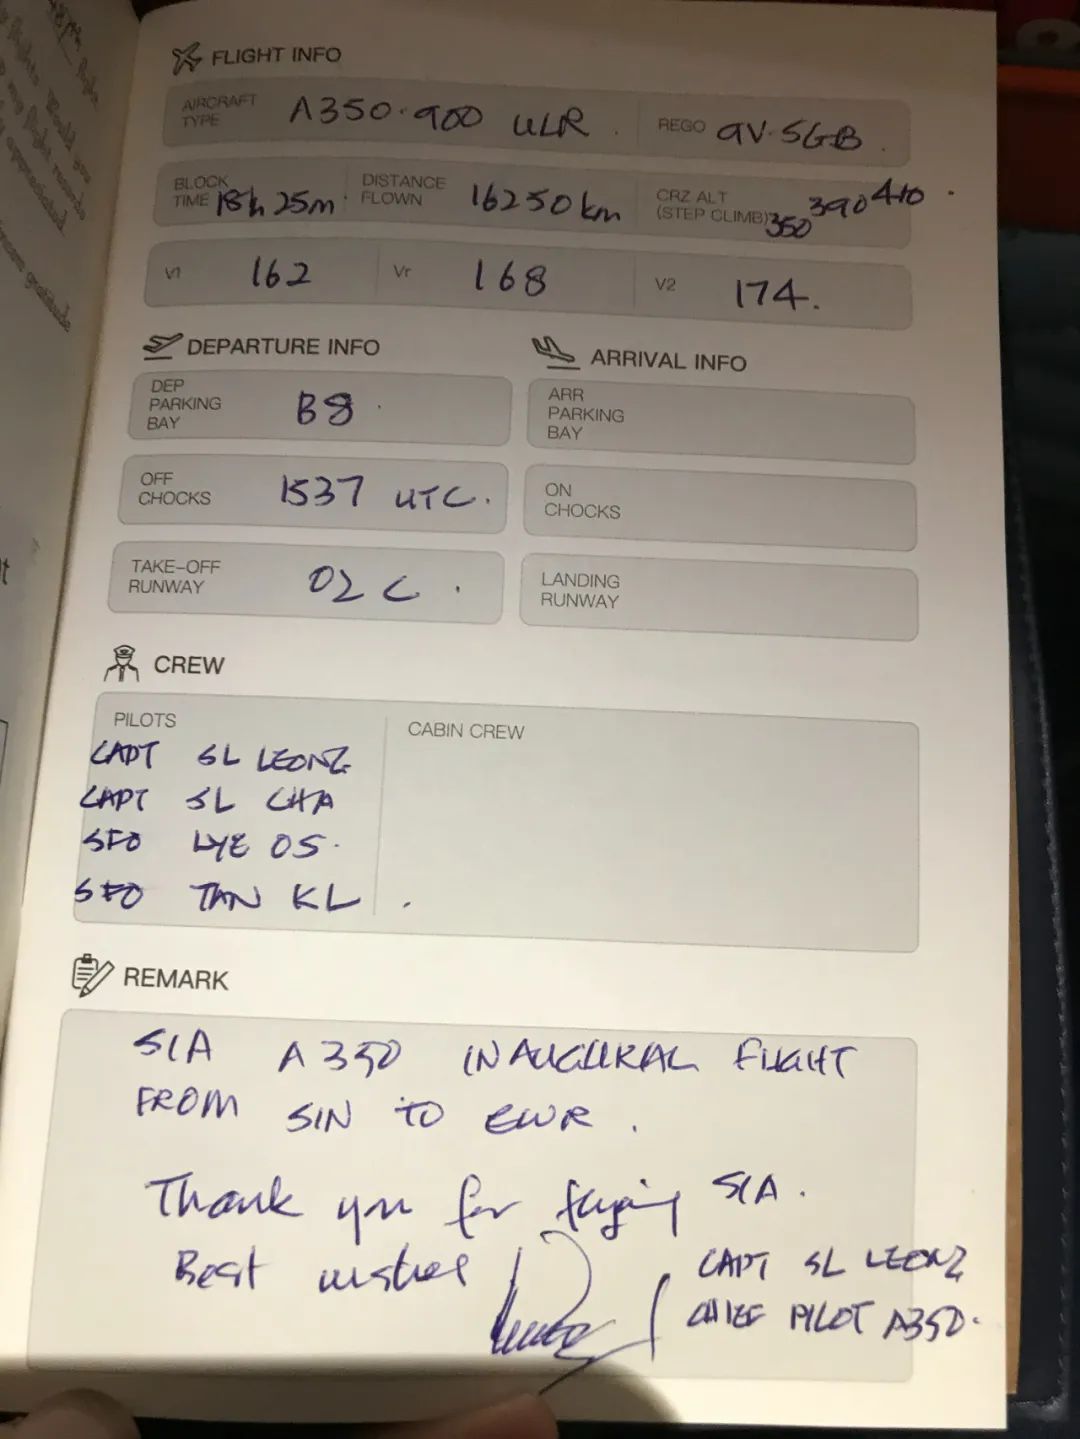 FLIGHT INFO
AIRCRAFT TYPE A350-900 ULR . REGO 9V-SGB .
BLOCK TIME 18h 25m DISTANCE FLOWN 16250 km CRZ ALT (STEP CLIMB) 350 390 410 .
V1 162 Vr 168 V2 174.
DEPARTURE INFO
DEP PARKING BAY B8 .
OFF CHOCKS 1537 UTC.
TAKE-OFF RUNWAY 02C .
ARRIVAL INFO
ARR PARKING BAY
ON CHOCKS
LANDING RUNWAY
CREW
PILOTS
CAPT SL LEONG
CAPT SL CHA
SFO LYE OS.
SFO TAN KL .
CABIN CREW
REMARK
SIA A350 INAUGURAL FLIGHT
FROM SIN TO EWR .
Thank you for flying SIA .
Best wishes
CAPT SL LEONG
CHIEF PILOT A350.